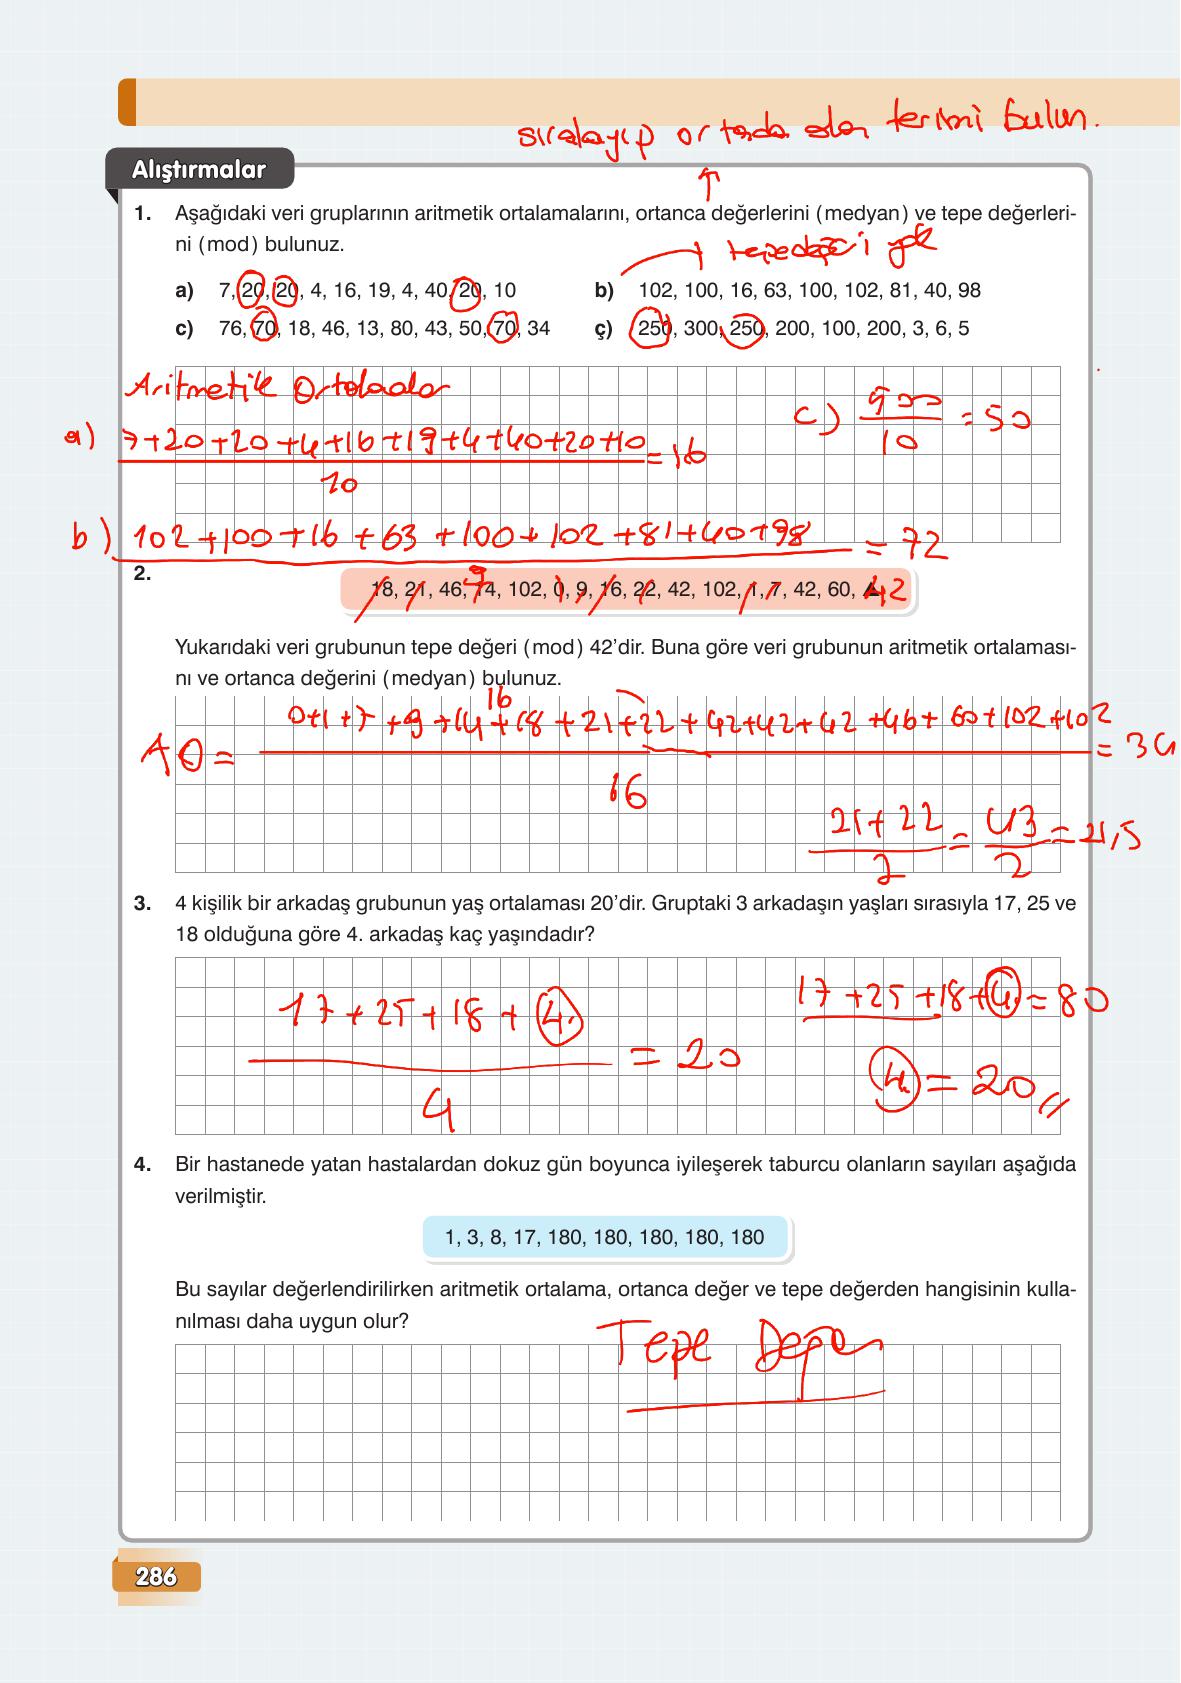 sıralayıp ortada olan terimi bulun.
Alıştırmalar
↑
1. Aşağıdaki veri gruplarının aritmetik ortalamalarını, ortanca değerlerini (medyan) ve tepe değerleri-
ni (mod) bulunuz.
tepe değeri yok
a) 7, 20, 20, 4, 16, 19, 4, 40, 20, 10
b) 102, 100, 16, 63, 100, 102, 81, 40, 98
c) 76, 70, 18, 46, 13, 80, 43, 50, 70, 34
ç) 250, 300, 250, 200, 100, 200, 3, 6, 5
Aritmetik
a) 7+20+20+4+16+19+4+40+20+10 = 16
10
c) 500 = 50
10
b) 102+100+16+63+100+102+81+40+98 = 72
9
2. 18, 21, 46, 14, 102, 0, 9, 16, 22, 42, 102, 1, 7, 42, 60, ▲ 42
Yukarıdaki veri grubunun tepe değeri (mod) 42'dir. Buna göre veri grubunun aritmetik ortalaması-
nı ve ortanca değerini (medyan) bulunuz.
16
AO = 0+1+7+9+14+18+21+22+42+42+42+46+60+102+102 = 34
16
21+22 = 43 = 21,5
2 2
3. 4 kişilik bir arkadaş grubunun yaş ortalaması 20'dir. Gruptaki 3 arkadaşın yaşları sırasıyla 17, 25 ve
18 olduğuna göre 4. arkadaş kaç yaşındadır?
17+25+18+4. = 20
4
17+25+18+4. = 80
4. = 20//
4. Bir hastanede yatan hastalardan dokuz gün boyunca iyileşerek taburcu olanların sayıları aşağıda
verilmiştir.
1, 3, 8, 17, 180, 180, 180, 180, 180
Bu sayılar değerlendirilirken aritmetik ortalama, ortanca değer ve tepe değerden hangisinin kulla-
nılması daha uygun olur?
Tepe Değer
286